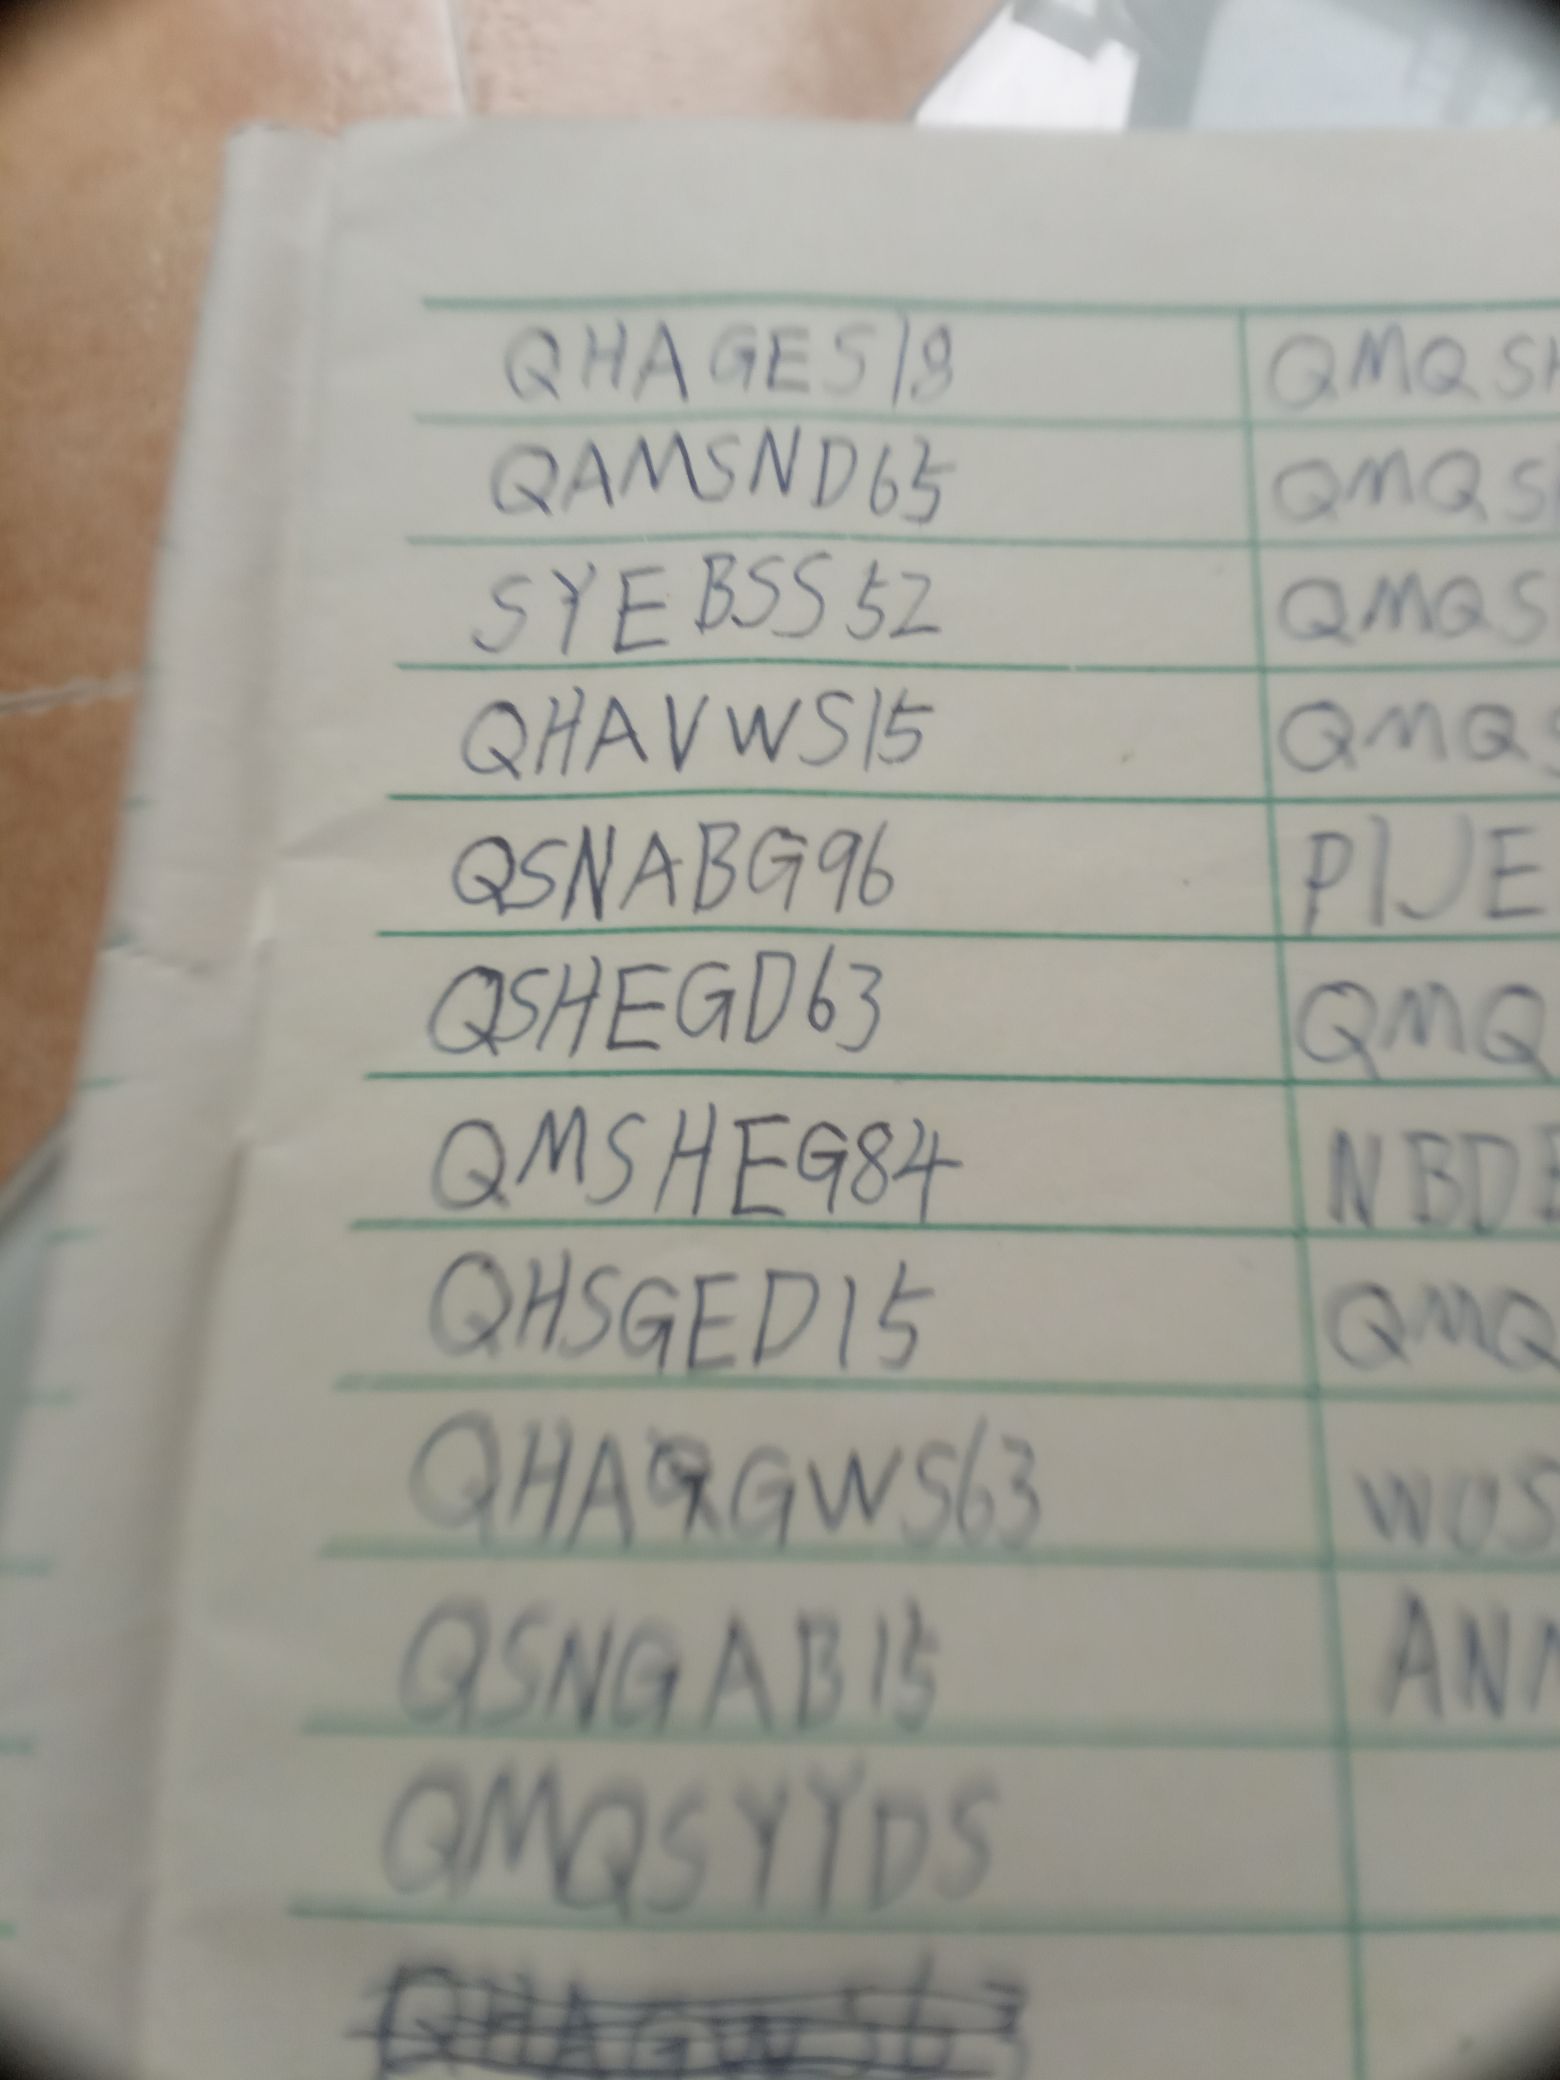 QHAGES18 QMQSH
QAMSND65 QMQS
SYEBSS52 QMQS
QHAVWS15 QMQS
QSNABG96 PIJE
QSHEGD63 QMQ
QMSHEG84 NBDE
QHSGED15 QMQ
QHAQGWS63 WUS
QSNGAB15 ANN
QMQSYYDS